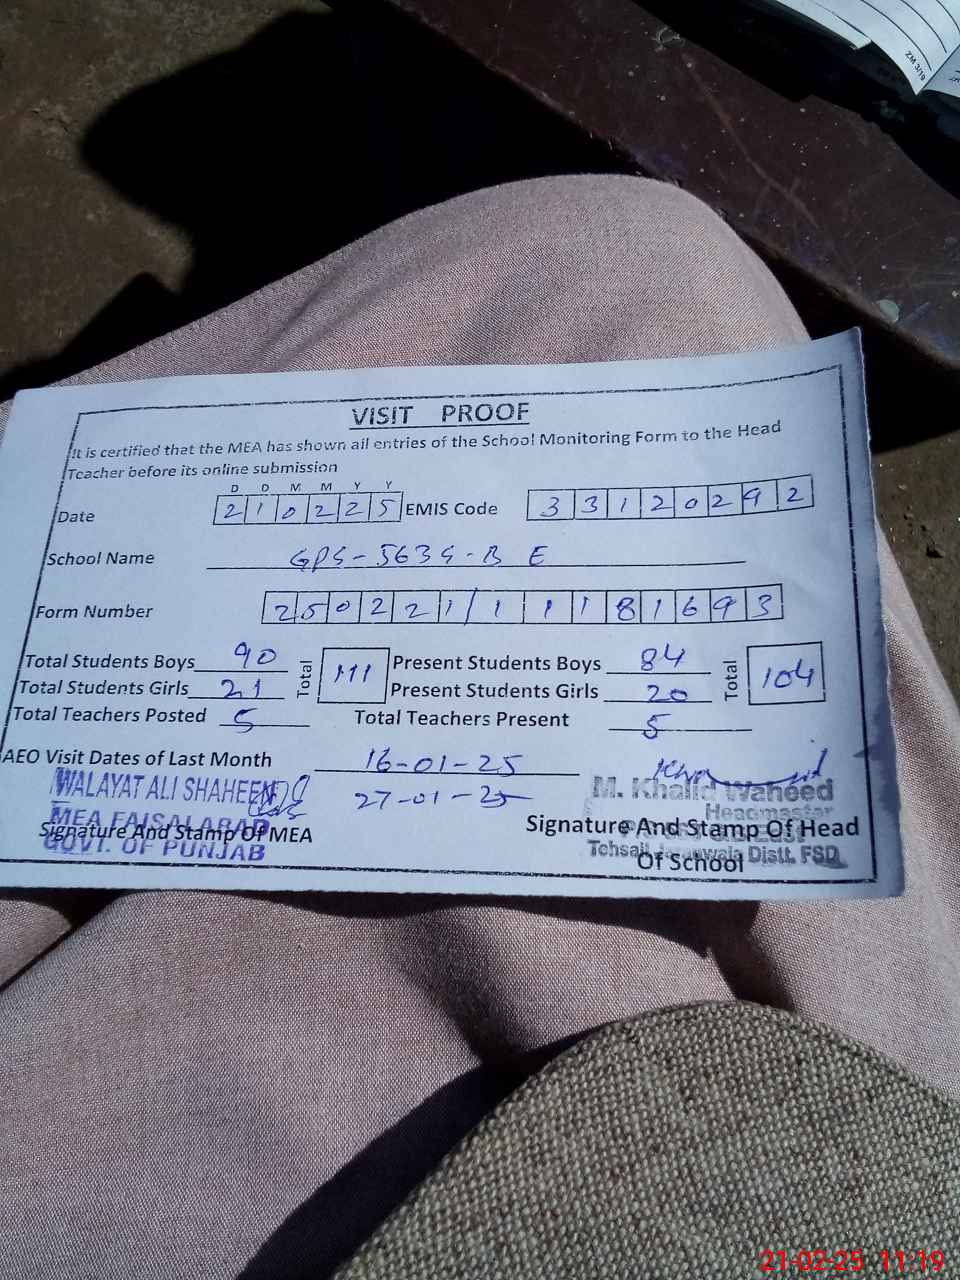 ZM 3/19
VISIT PROOF
It is certified that the MEA has shown all entries of the School Monitoring Form to the Head
Teacher before its online submission
D D M M Y Y
Date 2 1 0 2 2 5 EMIS Code 3 3 1 2 0 2 9 2
School Name GPS-563 G-B E
Form Number 2 5 0 2 2 1 / 1 1 1 8 1 6 9 3
Total Students Boys 90 Total 111 Present Students Boys 84 Total 104
Total Students Girls 21 Present Students Girls 20
Total Teachers Posted 5 Total Teachers Present 5
AEO Visit Dates of Last Month 16-01-25
27-01-25
WALAYAT ALI SHAHEEN
MEA FAISALABAD
GOVT. OF PUNJAB
Signature And Stamp Of MEA
M. Khalid Waheed
Headmaster
Tehsail Jaranwala Distt. FSD
Signature And Stamp Of Head
Of School
21-02-25 11:19